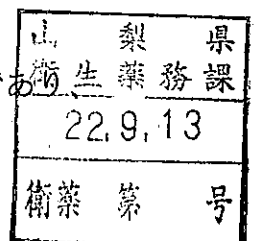 山梨県
であり、
衛生薬務課
22.9.13
衛薬第 号